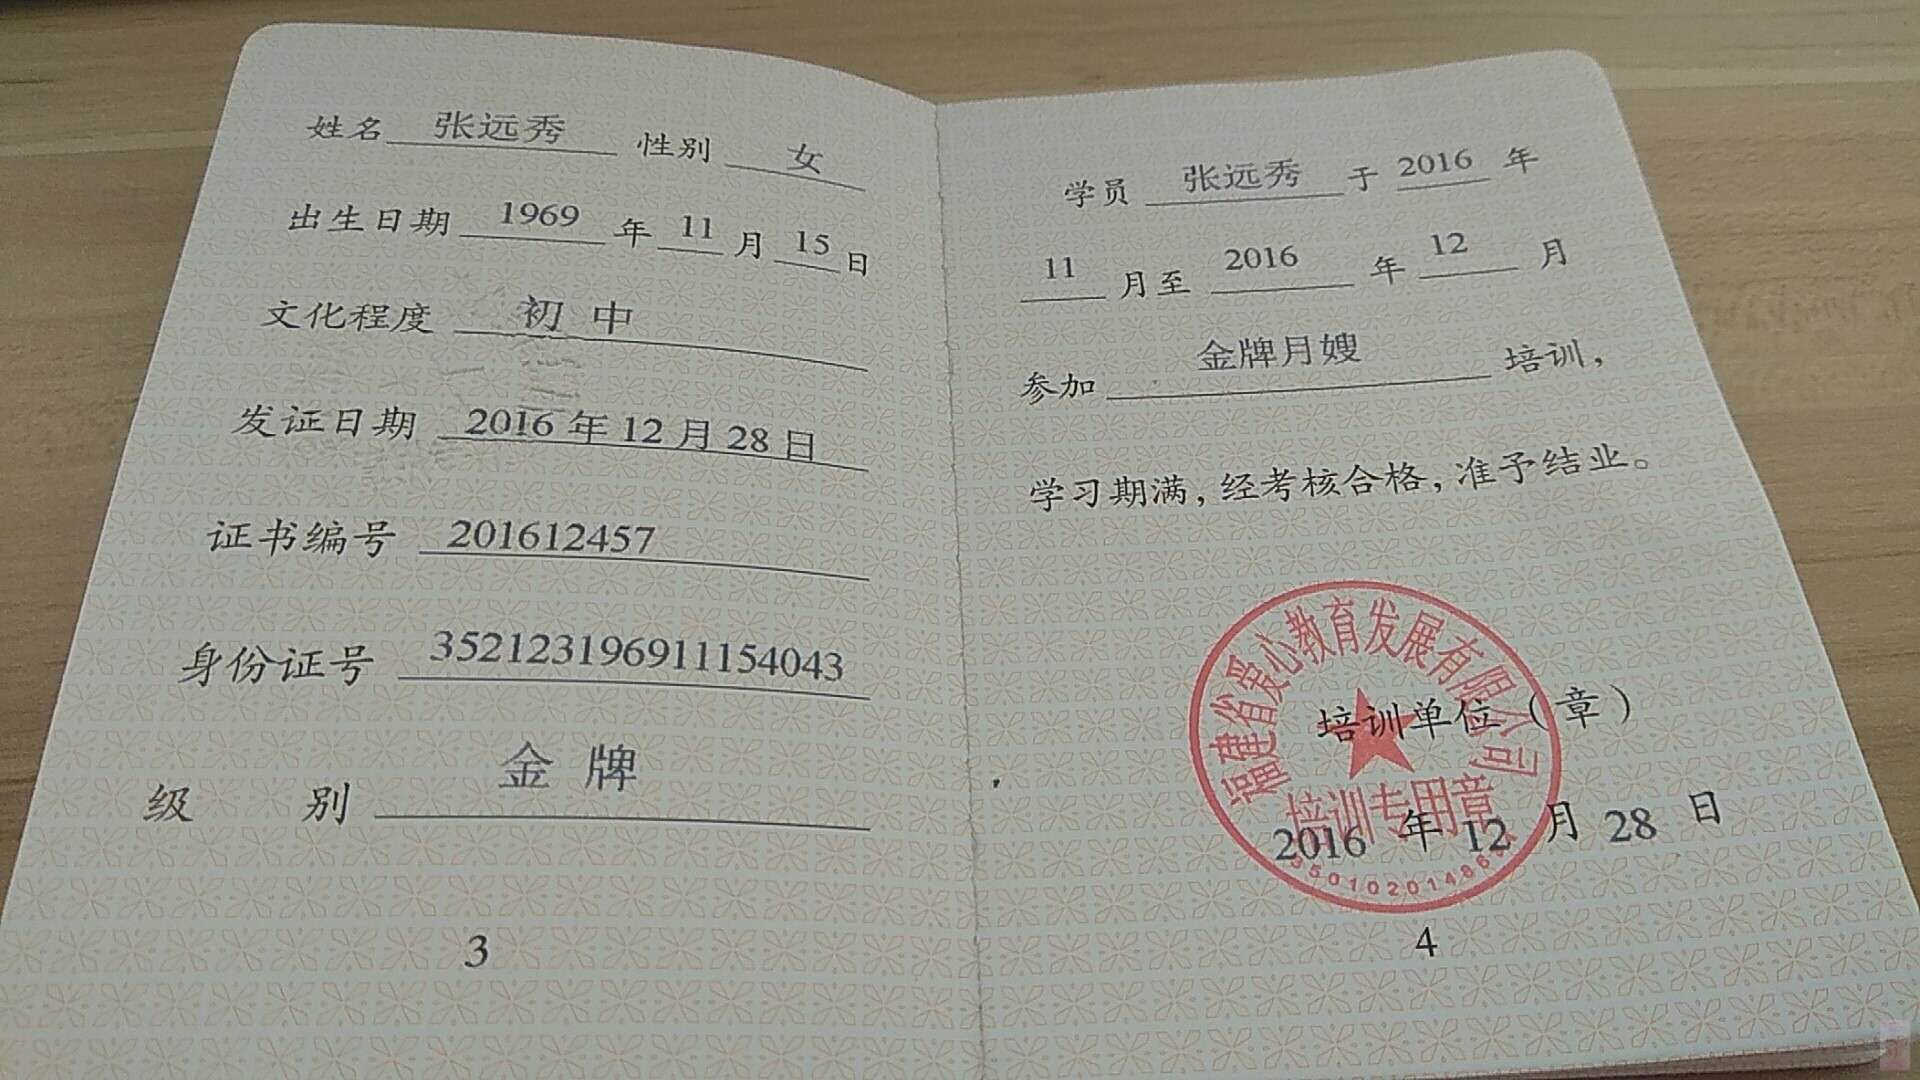 姓名 张远秀 性别 女
出生日期 1969 年 11 月 15 日
文化程度 初中
发证日期 2016年12月28日
证书编号 201612457
身份证号 352123196911154043
级 别 金牌
3
学员 张远秀 于 2016 年
11 月至 2016 年 12 月
参加 金牌月嫂 培训，
学习期满，经考核合格，准予结业。
福建省爱心教育发展有限公司
培训单位（章）
培训专用章
2016 年 12 月 28 日
4